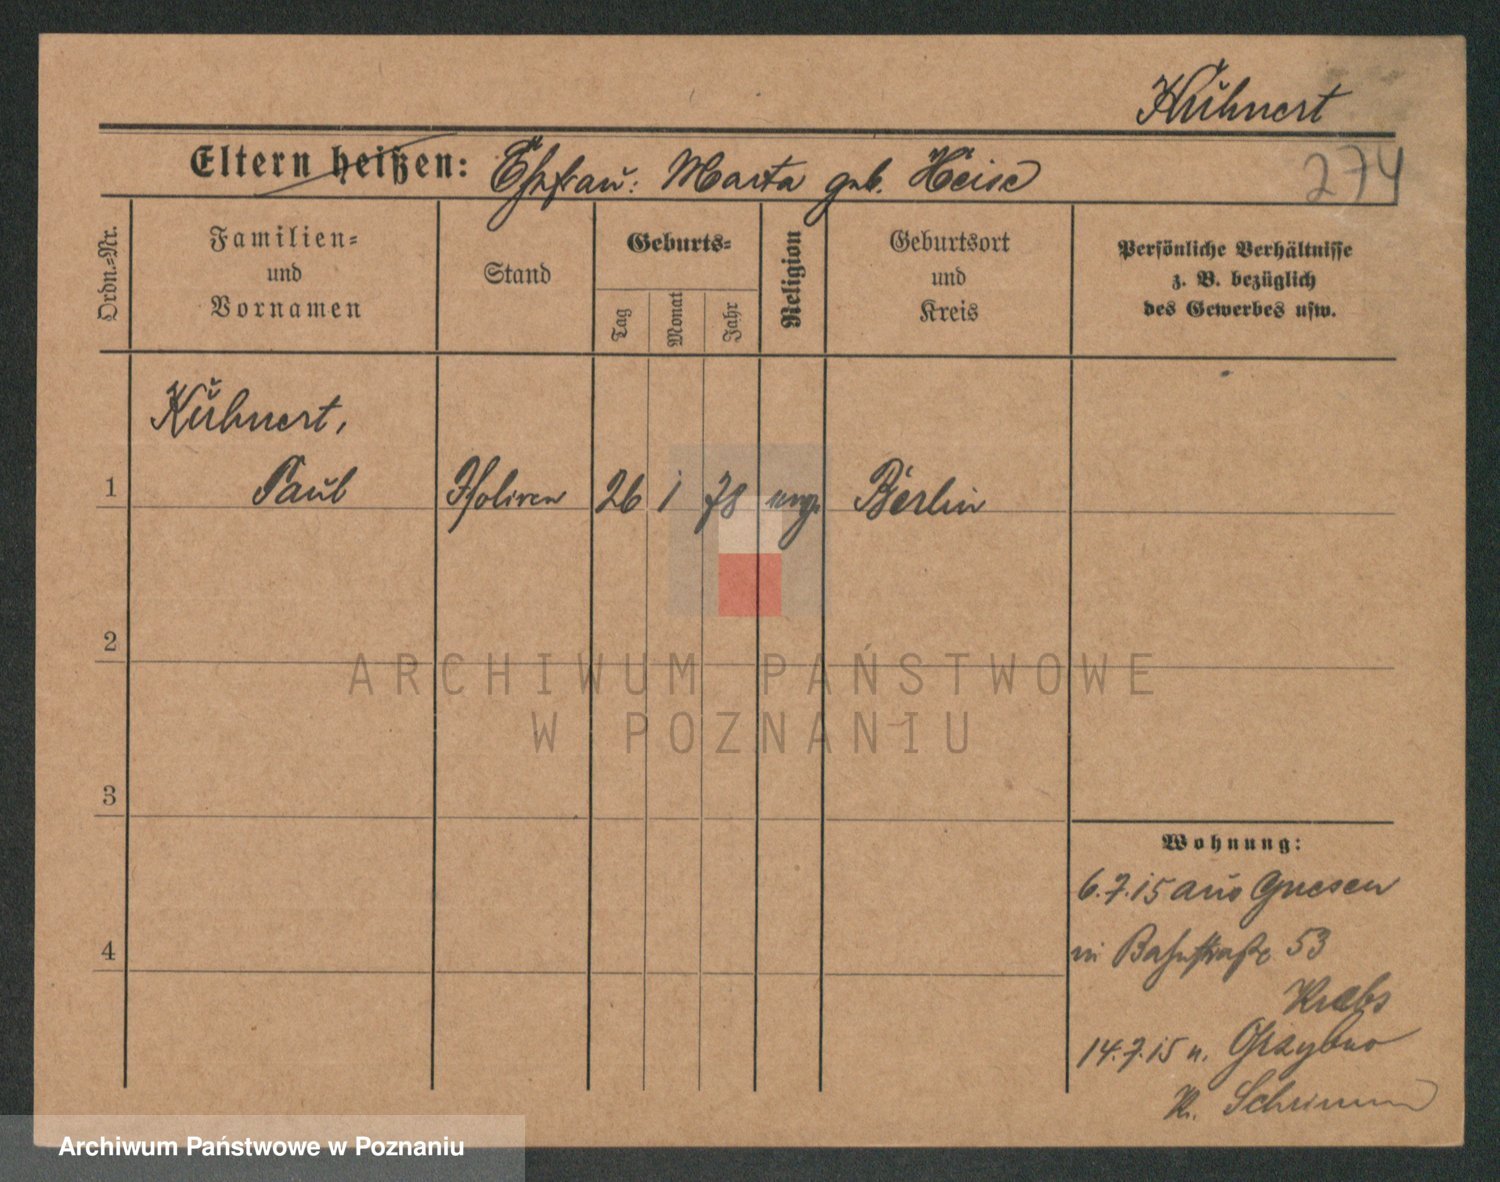 Kühnert
Eltern heißen: Ehefrau: Marta geb. Heise
274
Ordn.-Nr.
Familien-
und
Vornamen
Stand
Geburts-
Tag
Monat
Jahr
Religion
Geburtsort
und
Kreis
Persönliche Verhältnisse
z. B. bezüglich
des Gewerbes usw.
Kühnert,
1 Paul 26 1 78 evgl. Berlin
2
3
4
Wohnung:
6.7.15 aus Gnesen
in Bahnstraße 53
Krebs
14.7.15 n. Grzybno
Kr. Schrimm
ARCHIWUM PAŃSTWOWE
W POZNANIU
Archiwum Państwowe w Poznaniu